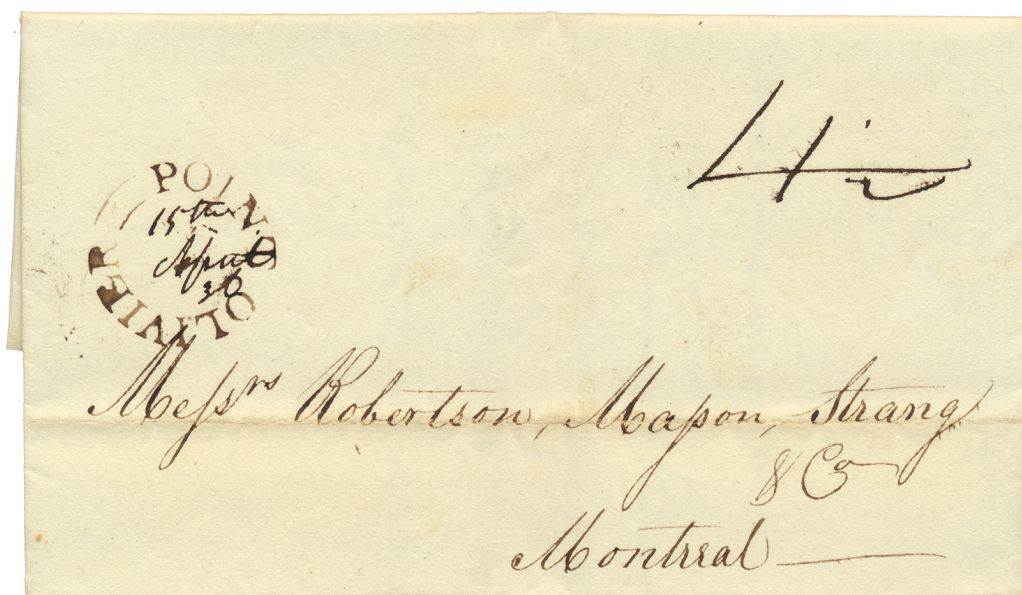 4½
POINTE
OLIVIER
15th
April
36
Messrs Robertson, Masson, Strang
& Co
Montreal